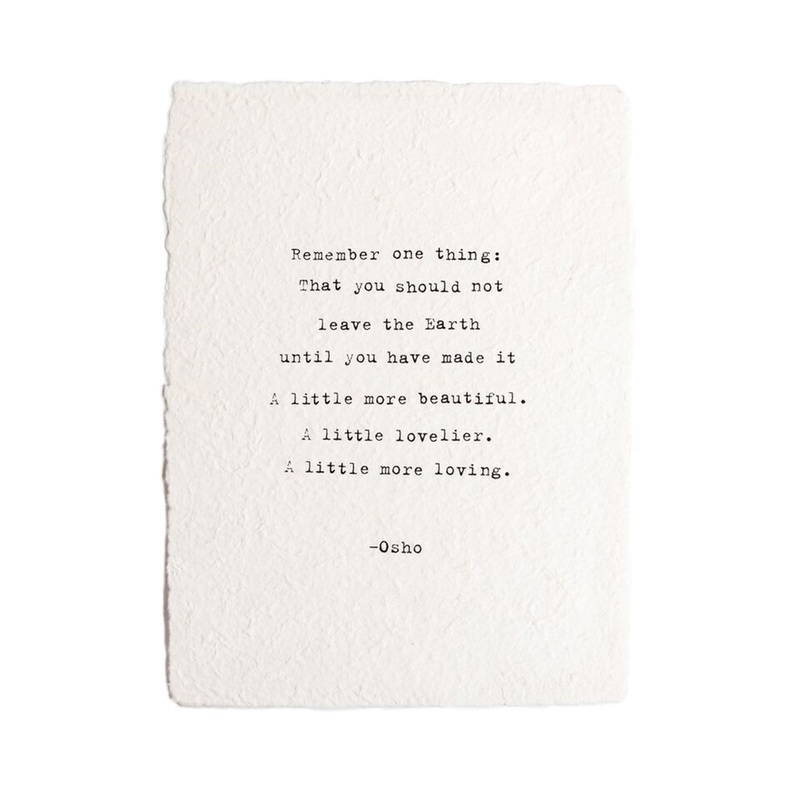 Remember one thing:
That you should not
leave the Earth
until you have made it
A little more beautiful.
A little lovelier.
A little more loving.
-Osho